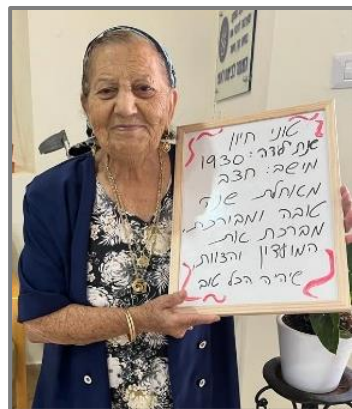 טוני חיון
שנת לידה: 1930
מושב: חצב
מאחלת שנה
טובה ומבורכת.
מברכת את
המועדון והצוות,
שיהיה הכל טוב